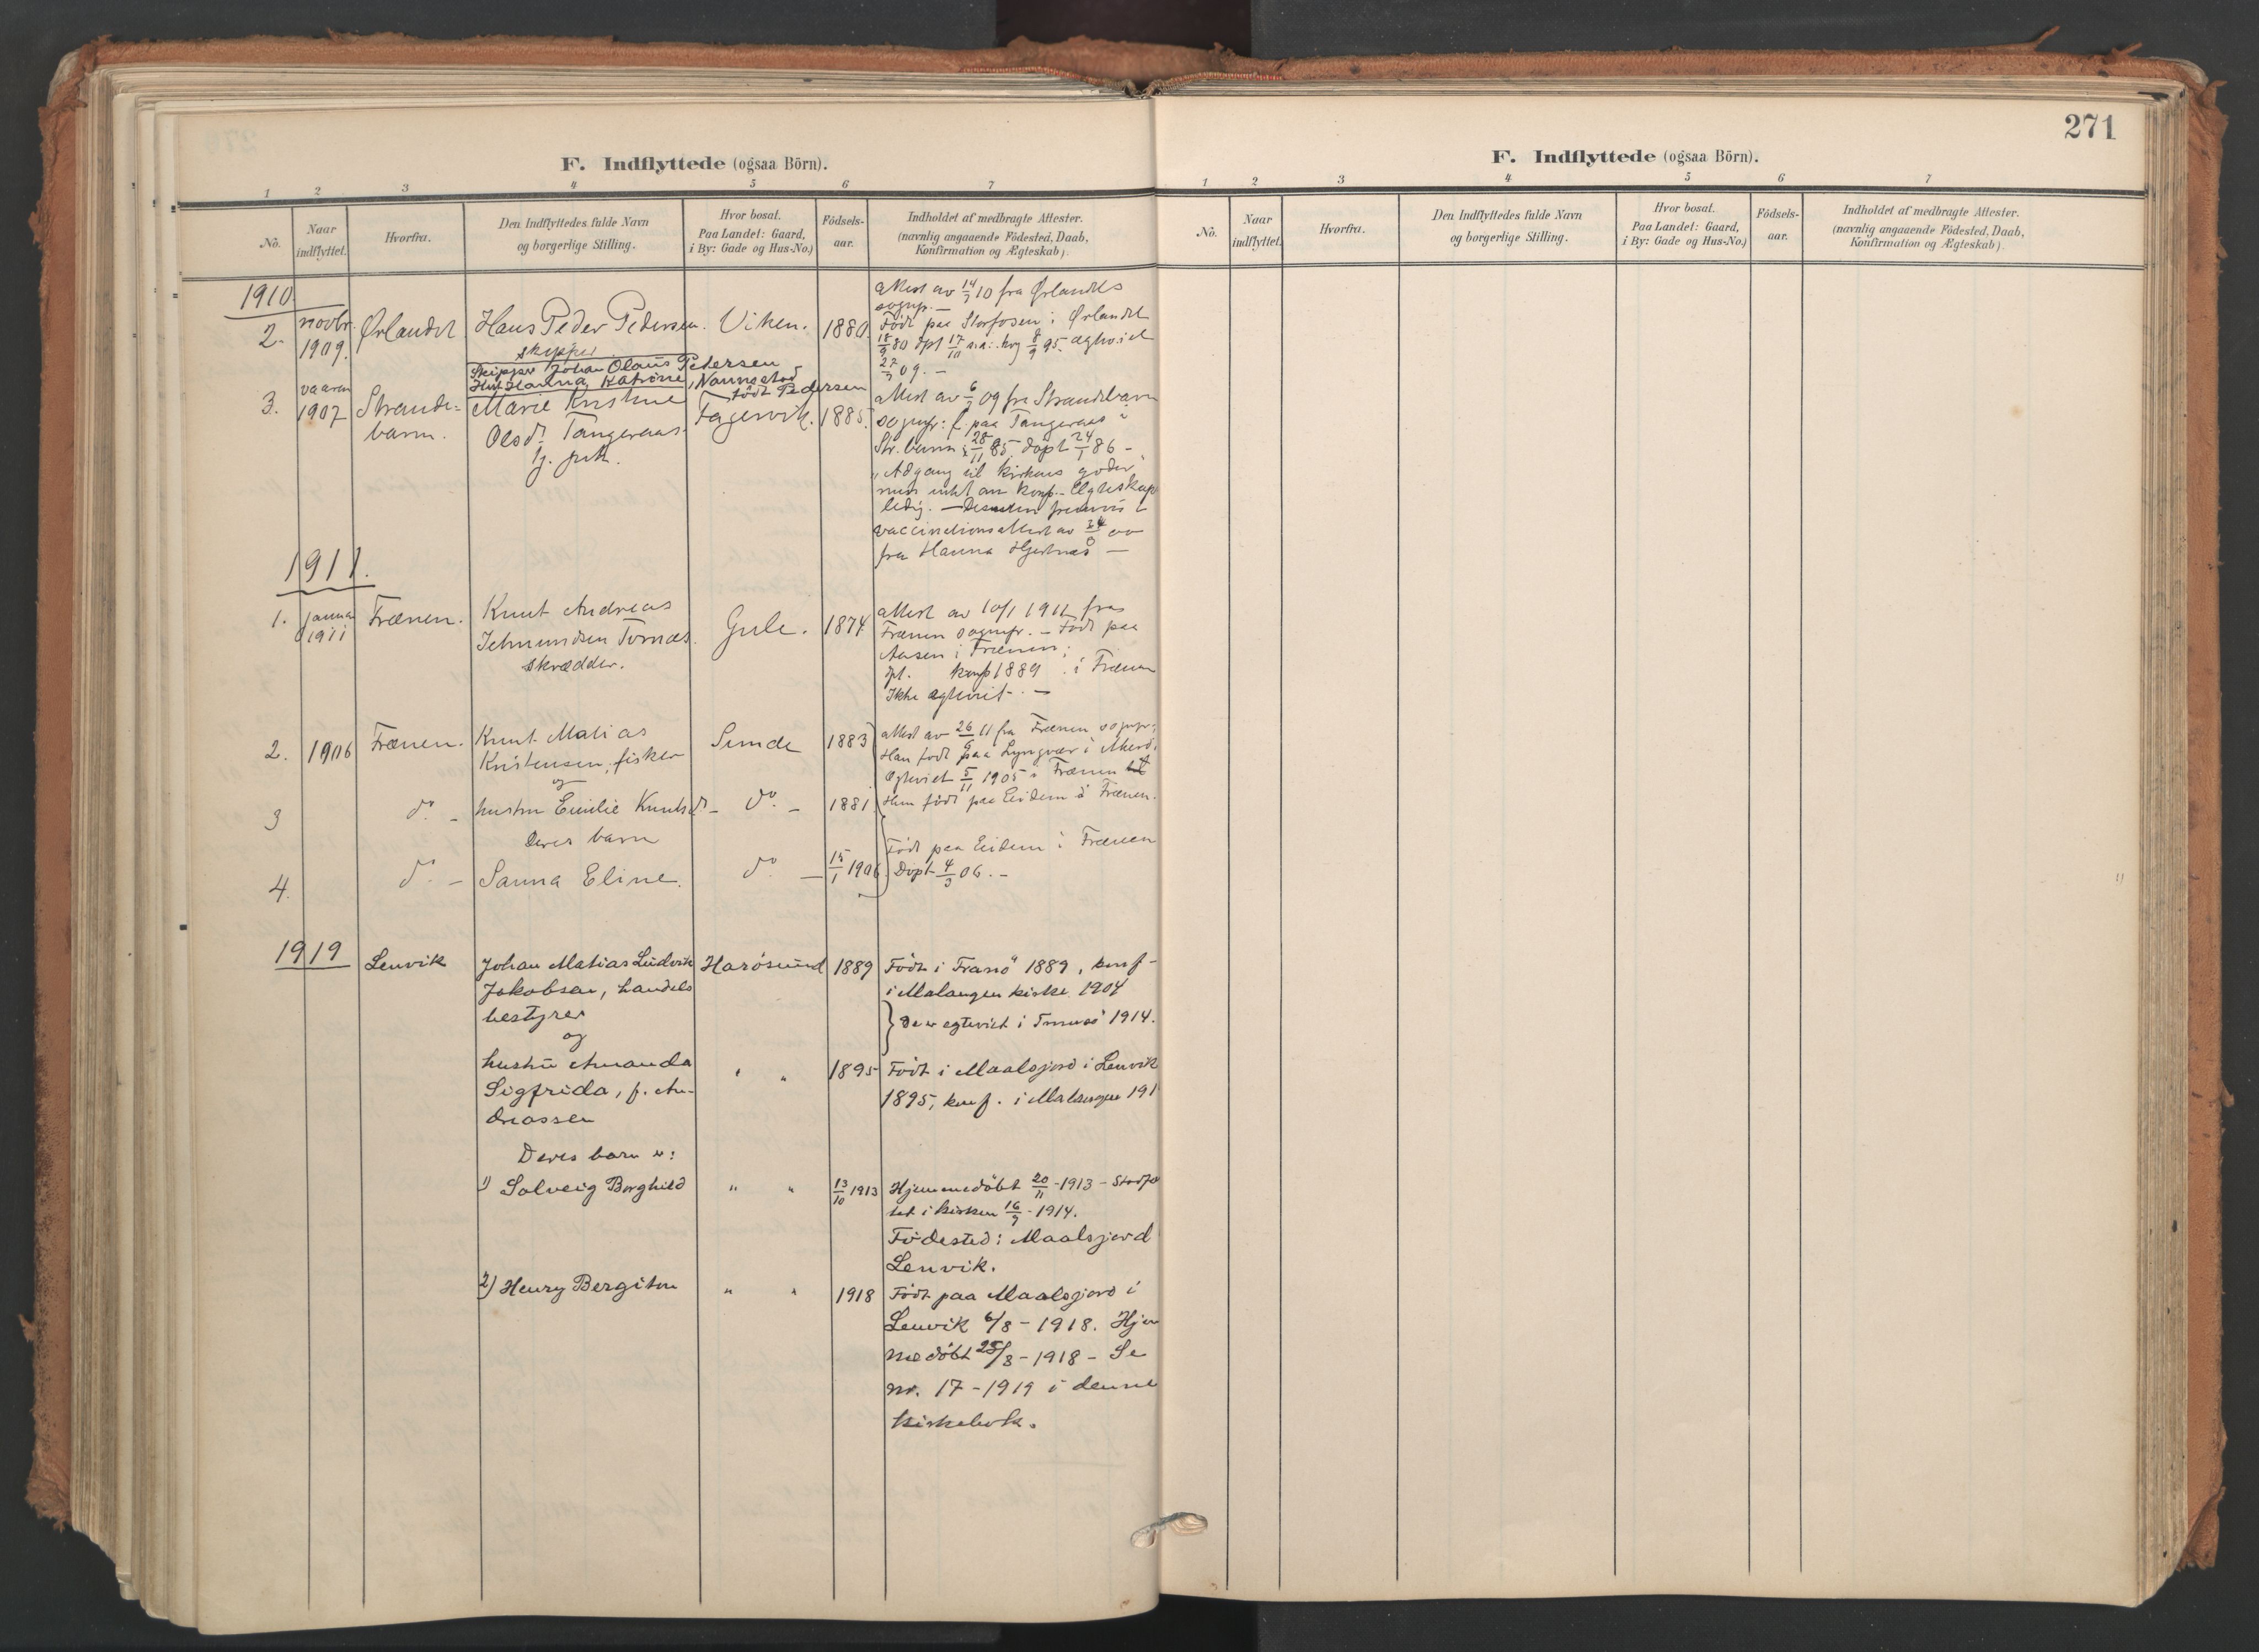 271
F. Indflyttede (ogsaa Börn).
1 2 3 4 5 6 7
No. Naar indflyttet. Hvorfra. Den Indflyttedes fulde Navn og borgerlige Stilling. Hvor bosat. Paa Landet: Gaard, i By: Gade og Hus-No.) Födsels-aar. Indholdet af medbragte Attester. (navnlig angaaende Födested, Daab, Konfirmation og Ægteskab).
1910
2. novbr. 1909. Ørlandet Hans Peder Pedersen. Viken. 1880.
skipper
Attest av 14/7 10 fra Ørlandets
sognepr. —
Født paa Storfosen i Ørlandet
18/9 80 dpt 17/10 s.a.: kfg 8/9 95. Ægtev. i et
27/7 09. —
Skipper Johan Olaus Petersen
Hust. Hanna Katrine, Naunestad
født Pedersen
3. vaaren 1907 Strande-
barm. Marie Kristine
Olsdr. Tangeraas
Fagervik. 1885.
Attest av 6/7 09 fra Strandebarm
sognpr: f. paa Tangeraas i
Str.barm 28/11 85, døpt 24/1 86 —
"Adgang til kirkens goder"
ledig. —
vaccinationsattest av
fra Hanna Hjertnæs —
1911.
1. januar 1911 Frænen. Knut Andreas
Tornæs.
skrædder.
Gule. 1874
Attest av 10/1 1911 fra
Frænen sognepr. — Født paa
Aasen i Frænen;
dpt. konf 1889 i Frænen
Ikke egteviet. —
2. 1906 Frænen. Knut Matias
Kristensen, fisker
og
Sunde 1883
Attest av 26/9 11 fra Frænen sognpr:
Han født paa Lyngvær i
Egteviet 5/11 1905 i Frænen
3 do. — hustru Emilie Knutsd. — do. — 1881
Hun født paa Eidem i Frænen.
Deres barn
4. do. — Sanna Eline. do. — 15/1 1906.
Født paa Eidem i Frænen
Døpt 4/3 06. —
1919 Lenvik Johan Matias Ludvik
Jakobsen, handels
bestyrer
og
Harøsund 1889
Født i Tranö 1889, konf-
i Malangen kirke 1904
De er egteviet i Tromsö 1914.
hustru Amanda
Sigfrida, f. An-
dreassen
" " 1895
Födt i Maalsjord i Lenvik
1895, konf. i Malangen 191
Deres barn er:
1) Solveig Borghild " " 13/10 1913
Hjemmedöbt 20/11 - 1913 - Stadfæ
tet i kirken 16/7 - 1914.
Födested: Maalsjord
Lenvik.
2) Henry Bergiton " " 1918
Födt paa Maalsjord i
Lenvik 6/8 - 1918. Hjem
medöbt 25/8 - 1918 - Se
nr. 17 - 1919 i denne
kirkebok.
F. Indflyttede (ogsaa Börn).
1 2 3 4 5 6 7
No. Naar indflyttet. Hvorfra. Den Indflyttedes fulde Navn og borgerlige Stilling. Hvor bosat. Paa Landet: Gaard, i By: Gade og Hus-No.) Födsels-aar. Indholdet af medbragte Attester. (navnlig angaaende Födested, Daab, Konfirmation og Ægteskab).